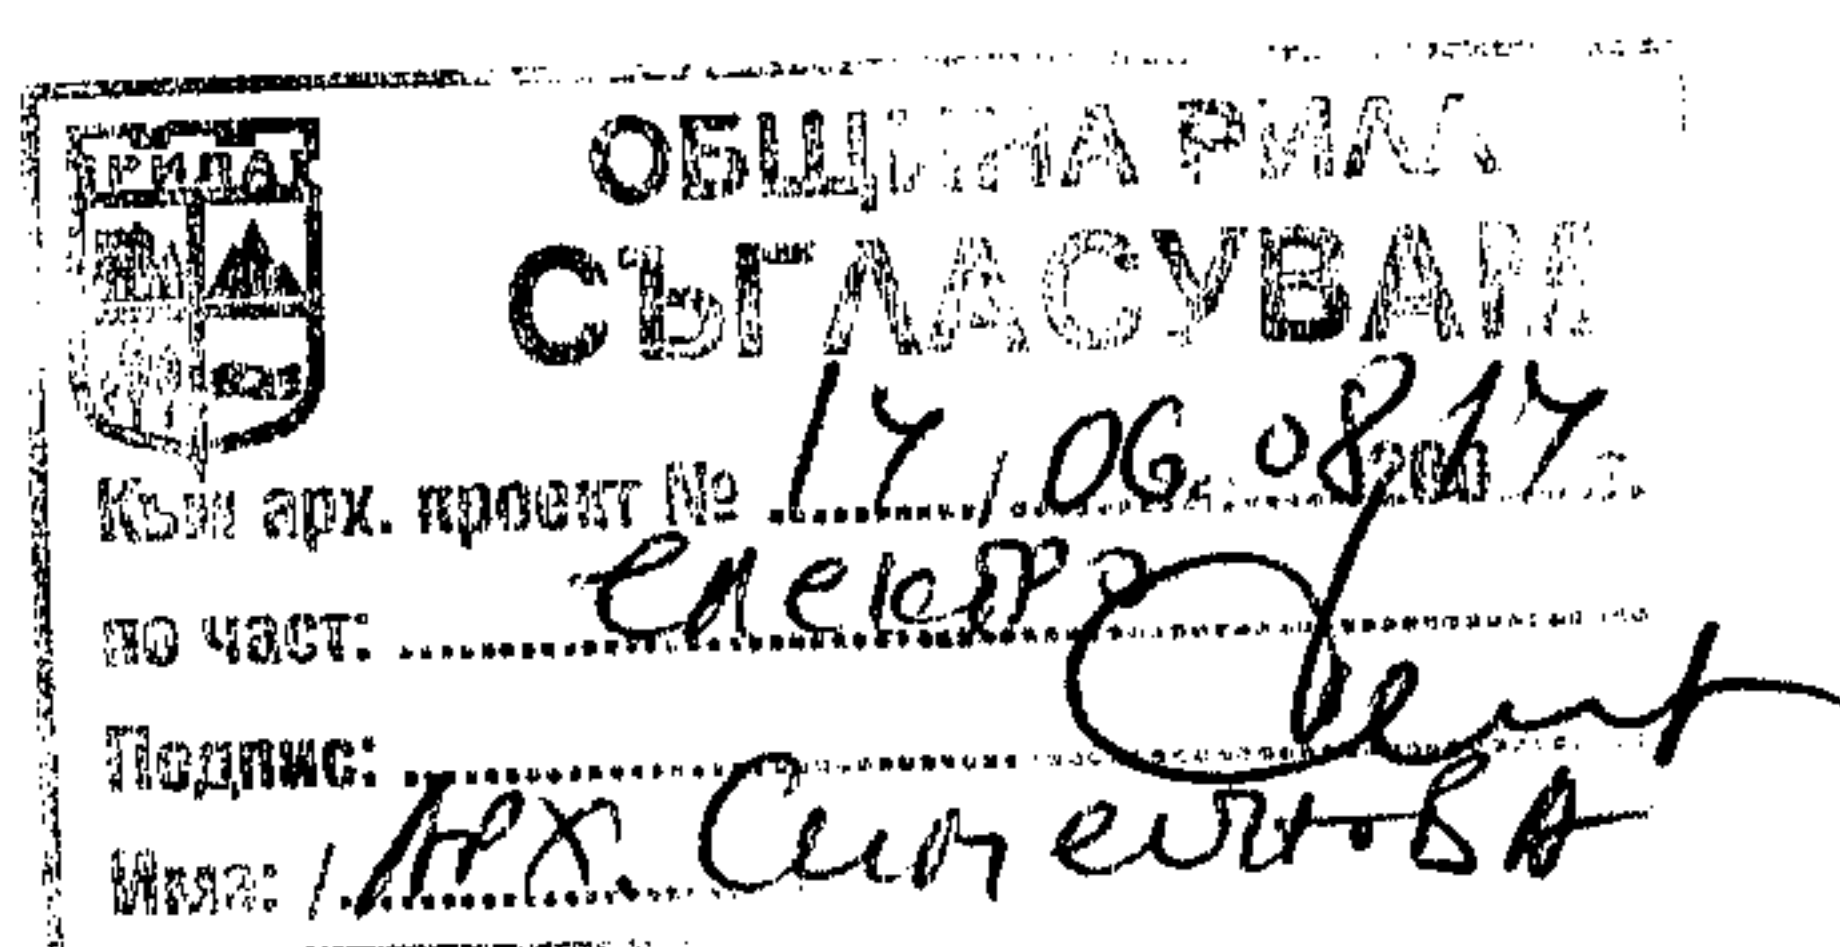 РИЛА
ОБЩИНА РИЛА
СЪГЛАСУВАМ
Към арх. проект № 14 / 06.08.2014 г.
по част: електро
Подпис:
Име: / Арх.